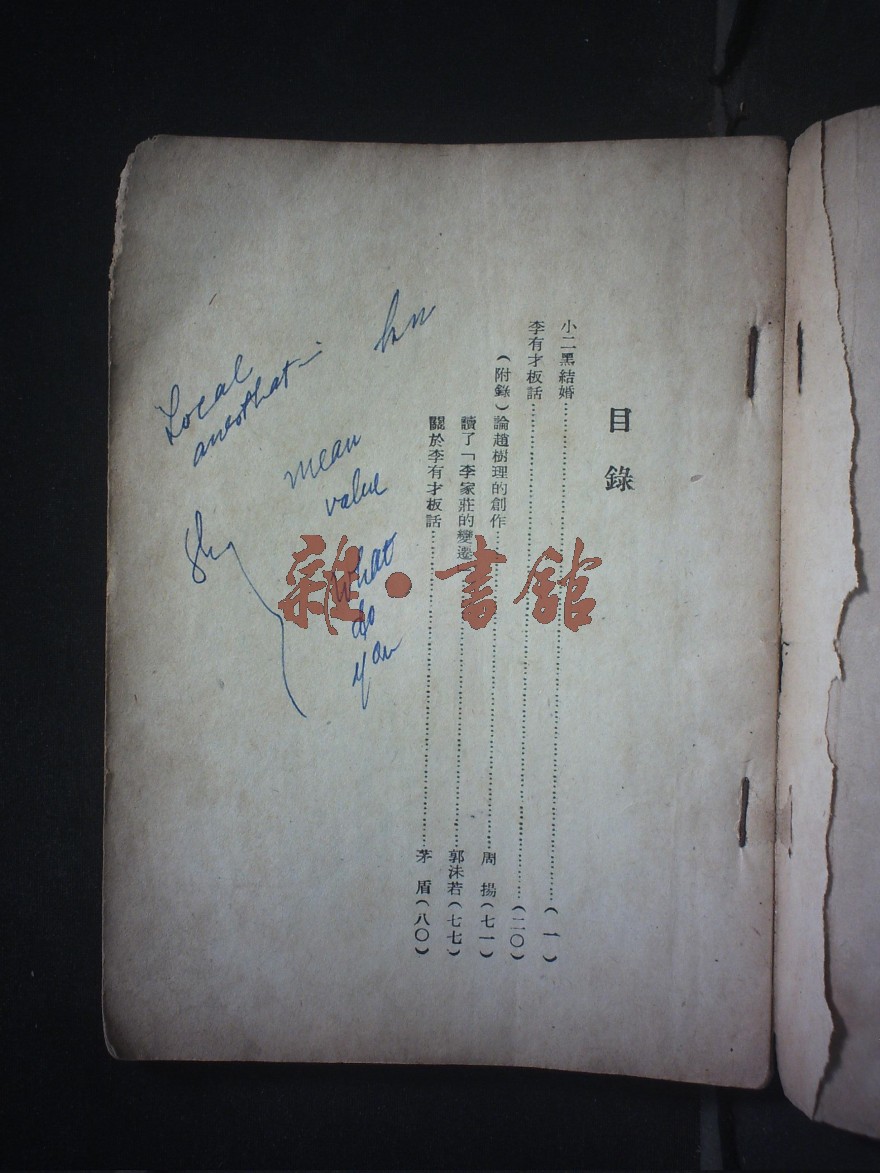 目錄
小二黑結婚……(一)
李有才板話……(二〇)
(附錄)論趙樹理的創作……周揚(七一)
讀了「李家莊的變遷……郭沫若(七七)
關於李有才板話……茅盾(八〇)
Local
mean
value
what
do
you
雜·書館